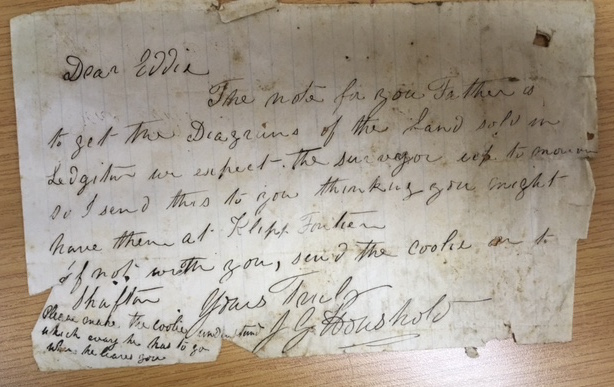 Dear Eddie
The note for you Father is
to get the Diagrams of the Land sold in
we expect the surveyor up to morrow
so I send this to you thinking you might
have them at Klip Fontien
if not with you, send the coolie on to
Shafton
Yours Truly
J G Houshold
Please make the coolie understand
which way he has to go
when he leaves you